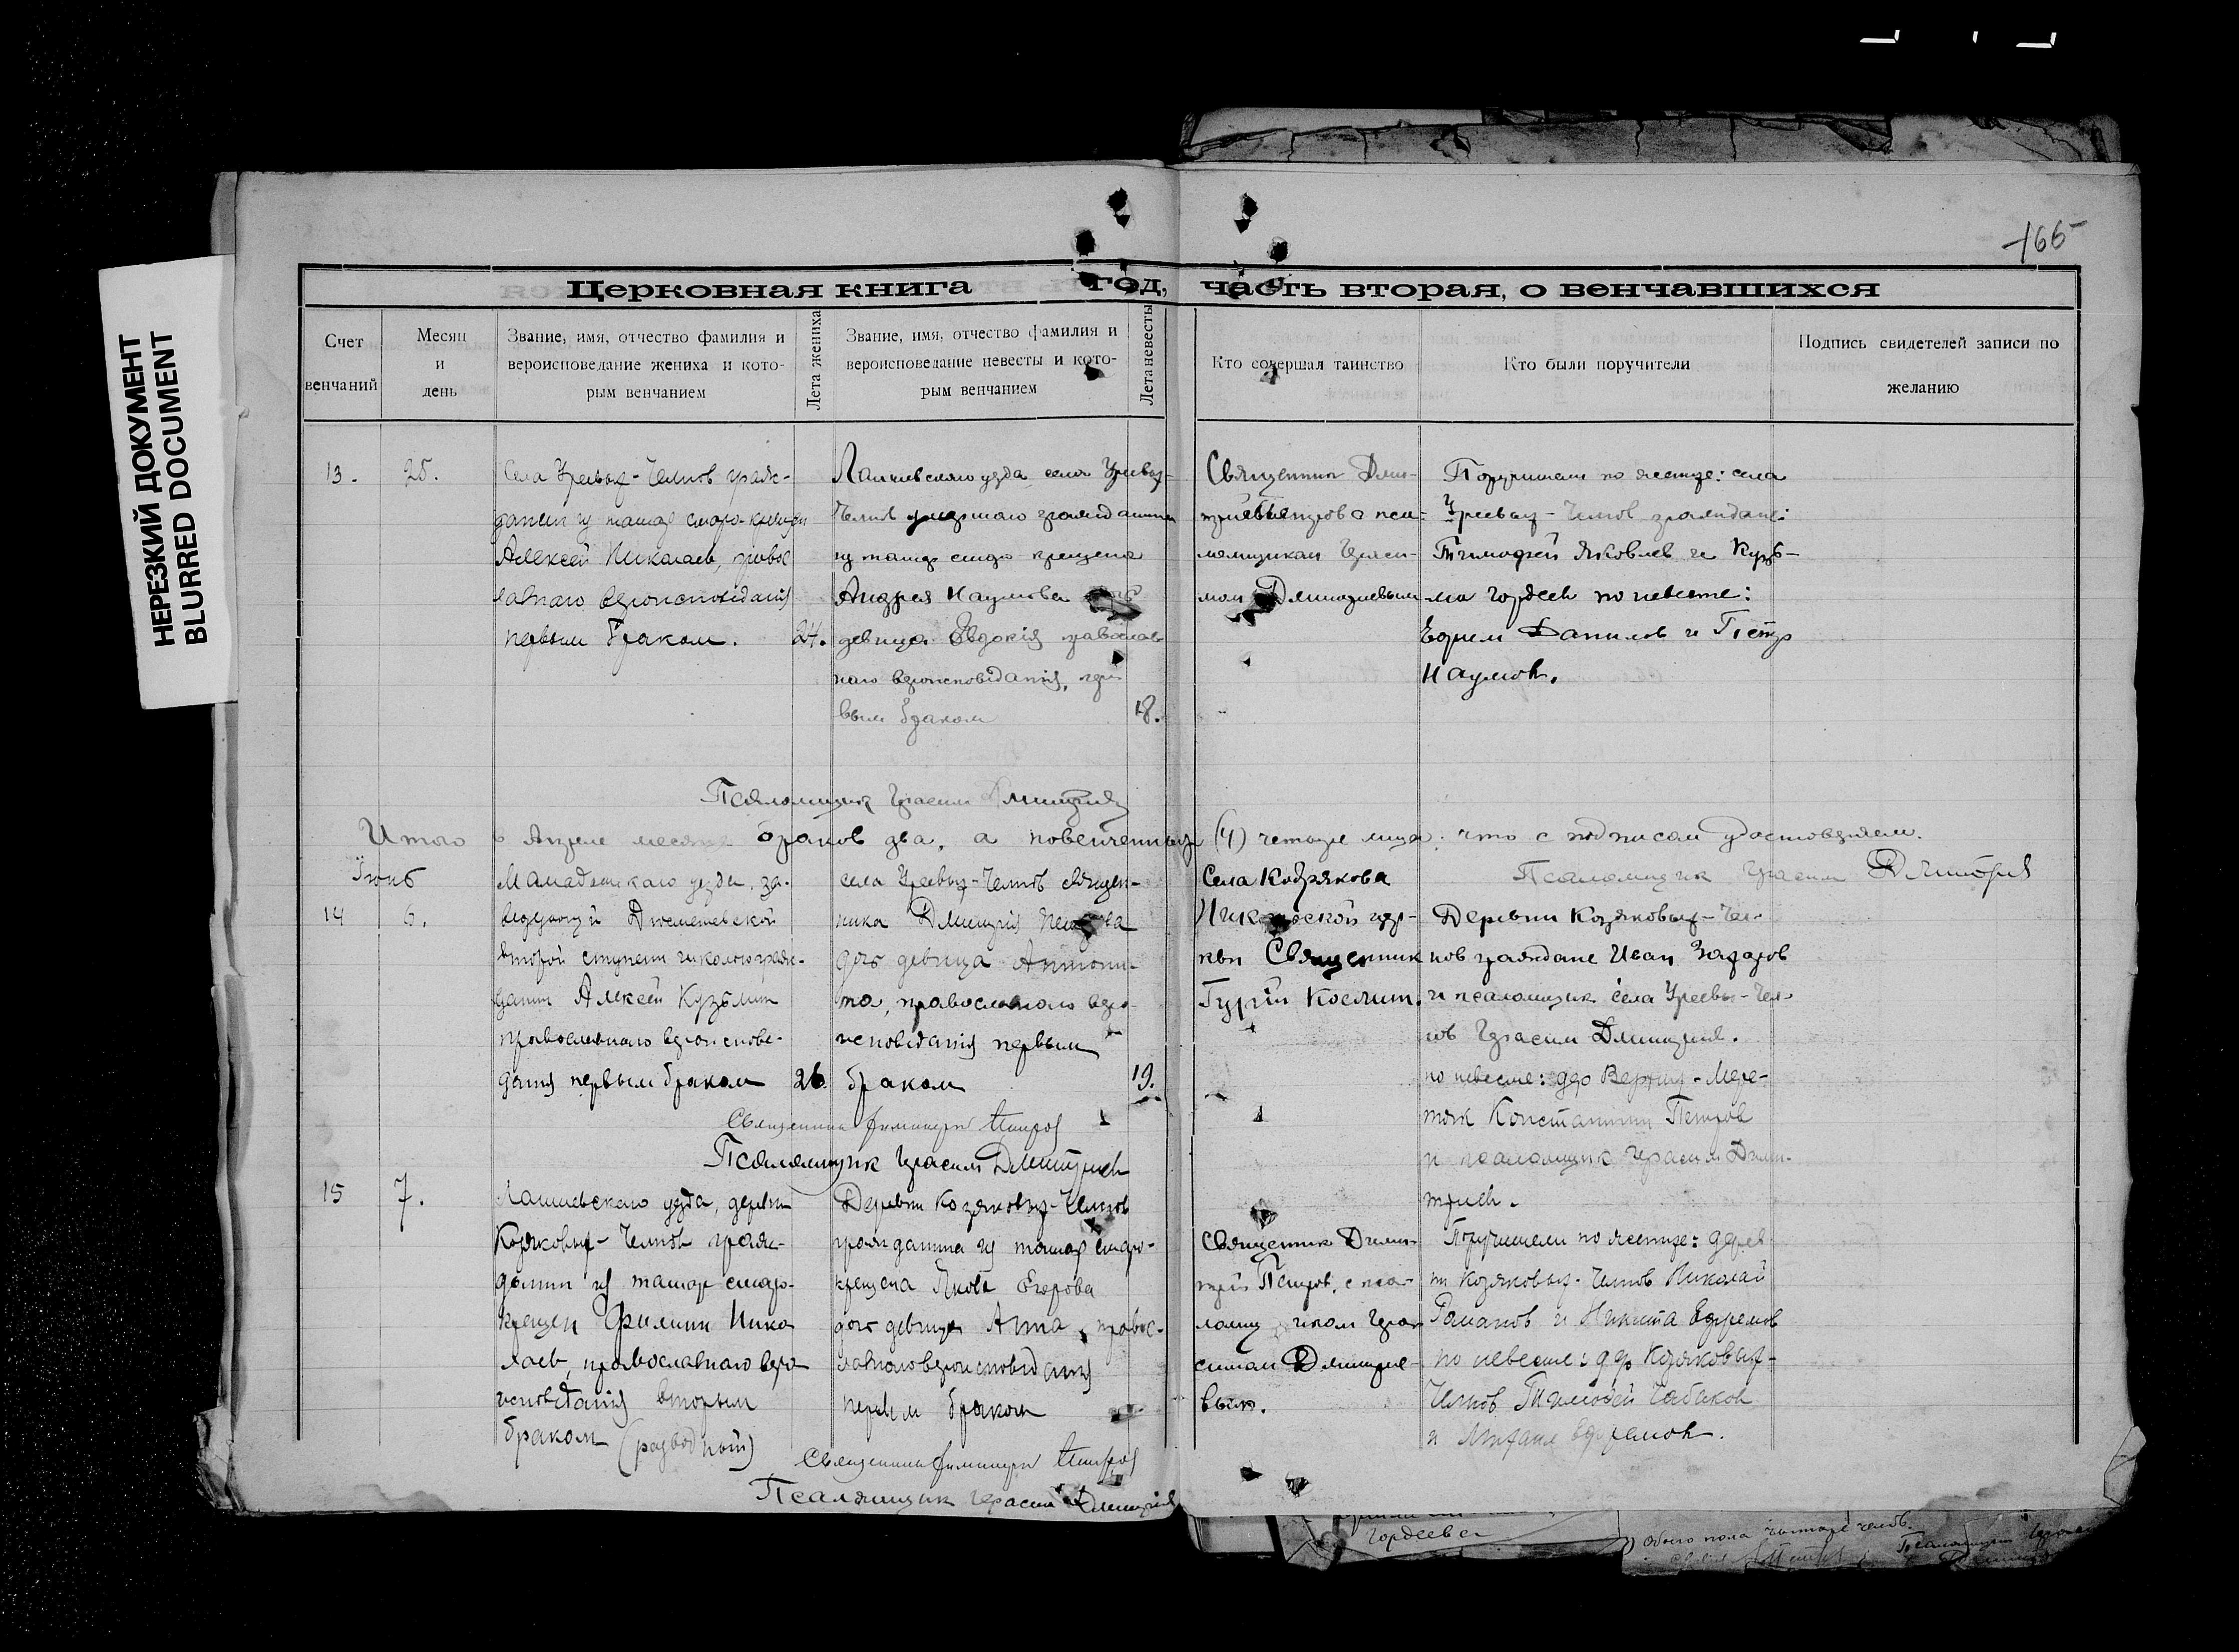 НЕРЕЗКИЙ ДОКУМЕНТ
BLURRED DOCUMENT
166
Церковная книга год, часть вторая, о венчавшихся
Счет венчаний
Месяц и день
Звание, имя, отчество фамилия и
вероисповедание жениха и кото-
рым венчанием
Лета жениха
Звание, имя, отчество фамилия и
вероисповедание невесты и кото-
рым венчанием
Лета невесты
Кто совершал таинство
Кто были поручители
Подпись свидетелей записи по
желанию
13.
25.
Села Уреевых-Челнов граж-
данин из татар старо-крещен
Алексей Николаев, правос
лавнаго вероисповеданія
первым браком.
24.
Лаишевскаго уезда села Уреевых-
Челнов умершаго гражданина
из татар старо крещена
Андрея Наумова дочь
девица Евдокія православ
наго вероисповеданія, пер
вым браком
18.
Священник Дми-
трій Петров с пса-
ломщиком Гераси-
мом Дмитриевым
Поручители по жениху: села
Уреевых-Челнов граждане:
Тимофей Яковлев и Кузь-
ма Гордеев по невесте:
Ефрем Данилов и Петр
Наумов.
Псаломщик Герасим Дмитриев
Итого в Апреле месяце браков два, а повенченных (4) четыре лица, что с подписом удостоверяем.
Псаломщик Герасим Дмитриев
Іюнь
14
6.
Мамадышскаго уезда, за-
ведующій
второй ступени школою граж-
данин Алексей Кузьмин
православнаго вероиспове-
данія первым браком
26.
села Уреевых-Челнов священ-
ника Дмитрія Петрова
дочь девица Антони-
на, православнаго веро-
исповеданія первым
браком
19.
Села Кобякова
Никольской цер-
кви Священник
Гурій Космин.
Деревни Козяковых-Чел-
нов граждане Иван Захаров
и псаломщик села Уреевы-Чел-
нов Герасим Дмитриев.
по невесте: дер Верхних-Мере-
тяк Константин Петров
и псаломщик Герасим Дми-
триев.
Священник Димитрий Петров
Псаломщик Герасим Дмитриев
15
7.
Лаишевскаго уезда, деревни
Козяковых-Челнов граж-
данин из татар старо-
крещен Филипп Нико
лаев, православнаго веро
исповеданія вторым
браком (разводной)
Деревни Козяковых-Челнов
гражданина из татар старо-
крещена Якова Егорова
дочь девица Анна, правос-
лавнаго вероисповеданія
первым браком
Священник Дми-
трій Петров, с пса-
ломщиком Гера
симом Дмитрие-
вым.
Поручители по жениху: дерев
ни Козяковых-Челнов Николай
Романов и Никита Ефремов
по невесте: дер Козяковых-
Челнов Тимофей Чабаков
и Михаил Ефремов.
Священник Димитрий Петров
Псаломщик Герасим Дмитриев
Гордеева
обоего пола четыре челов.
Псаломщик